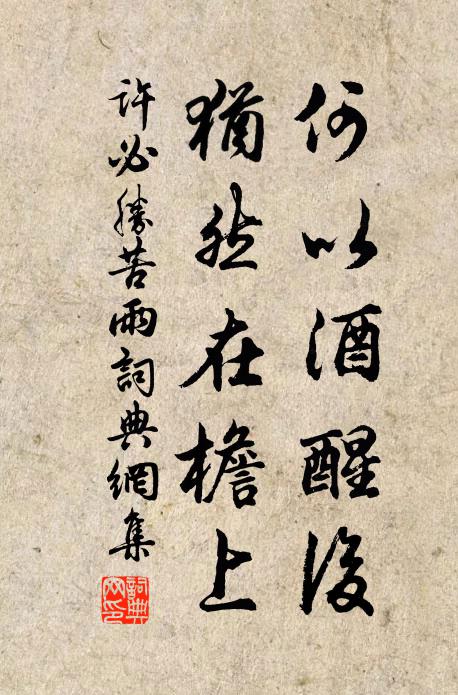 何以酒醒後
猶然在檐上
許必勝苦雨詞典網集
詞典網印